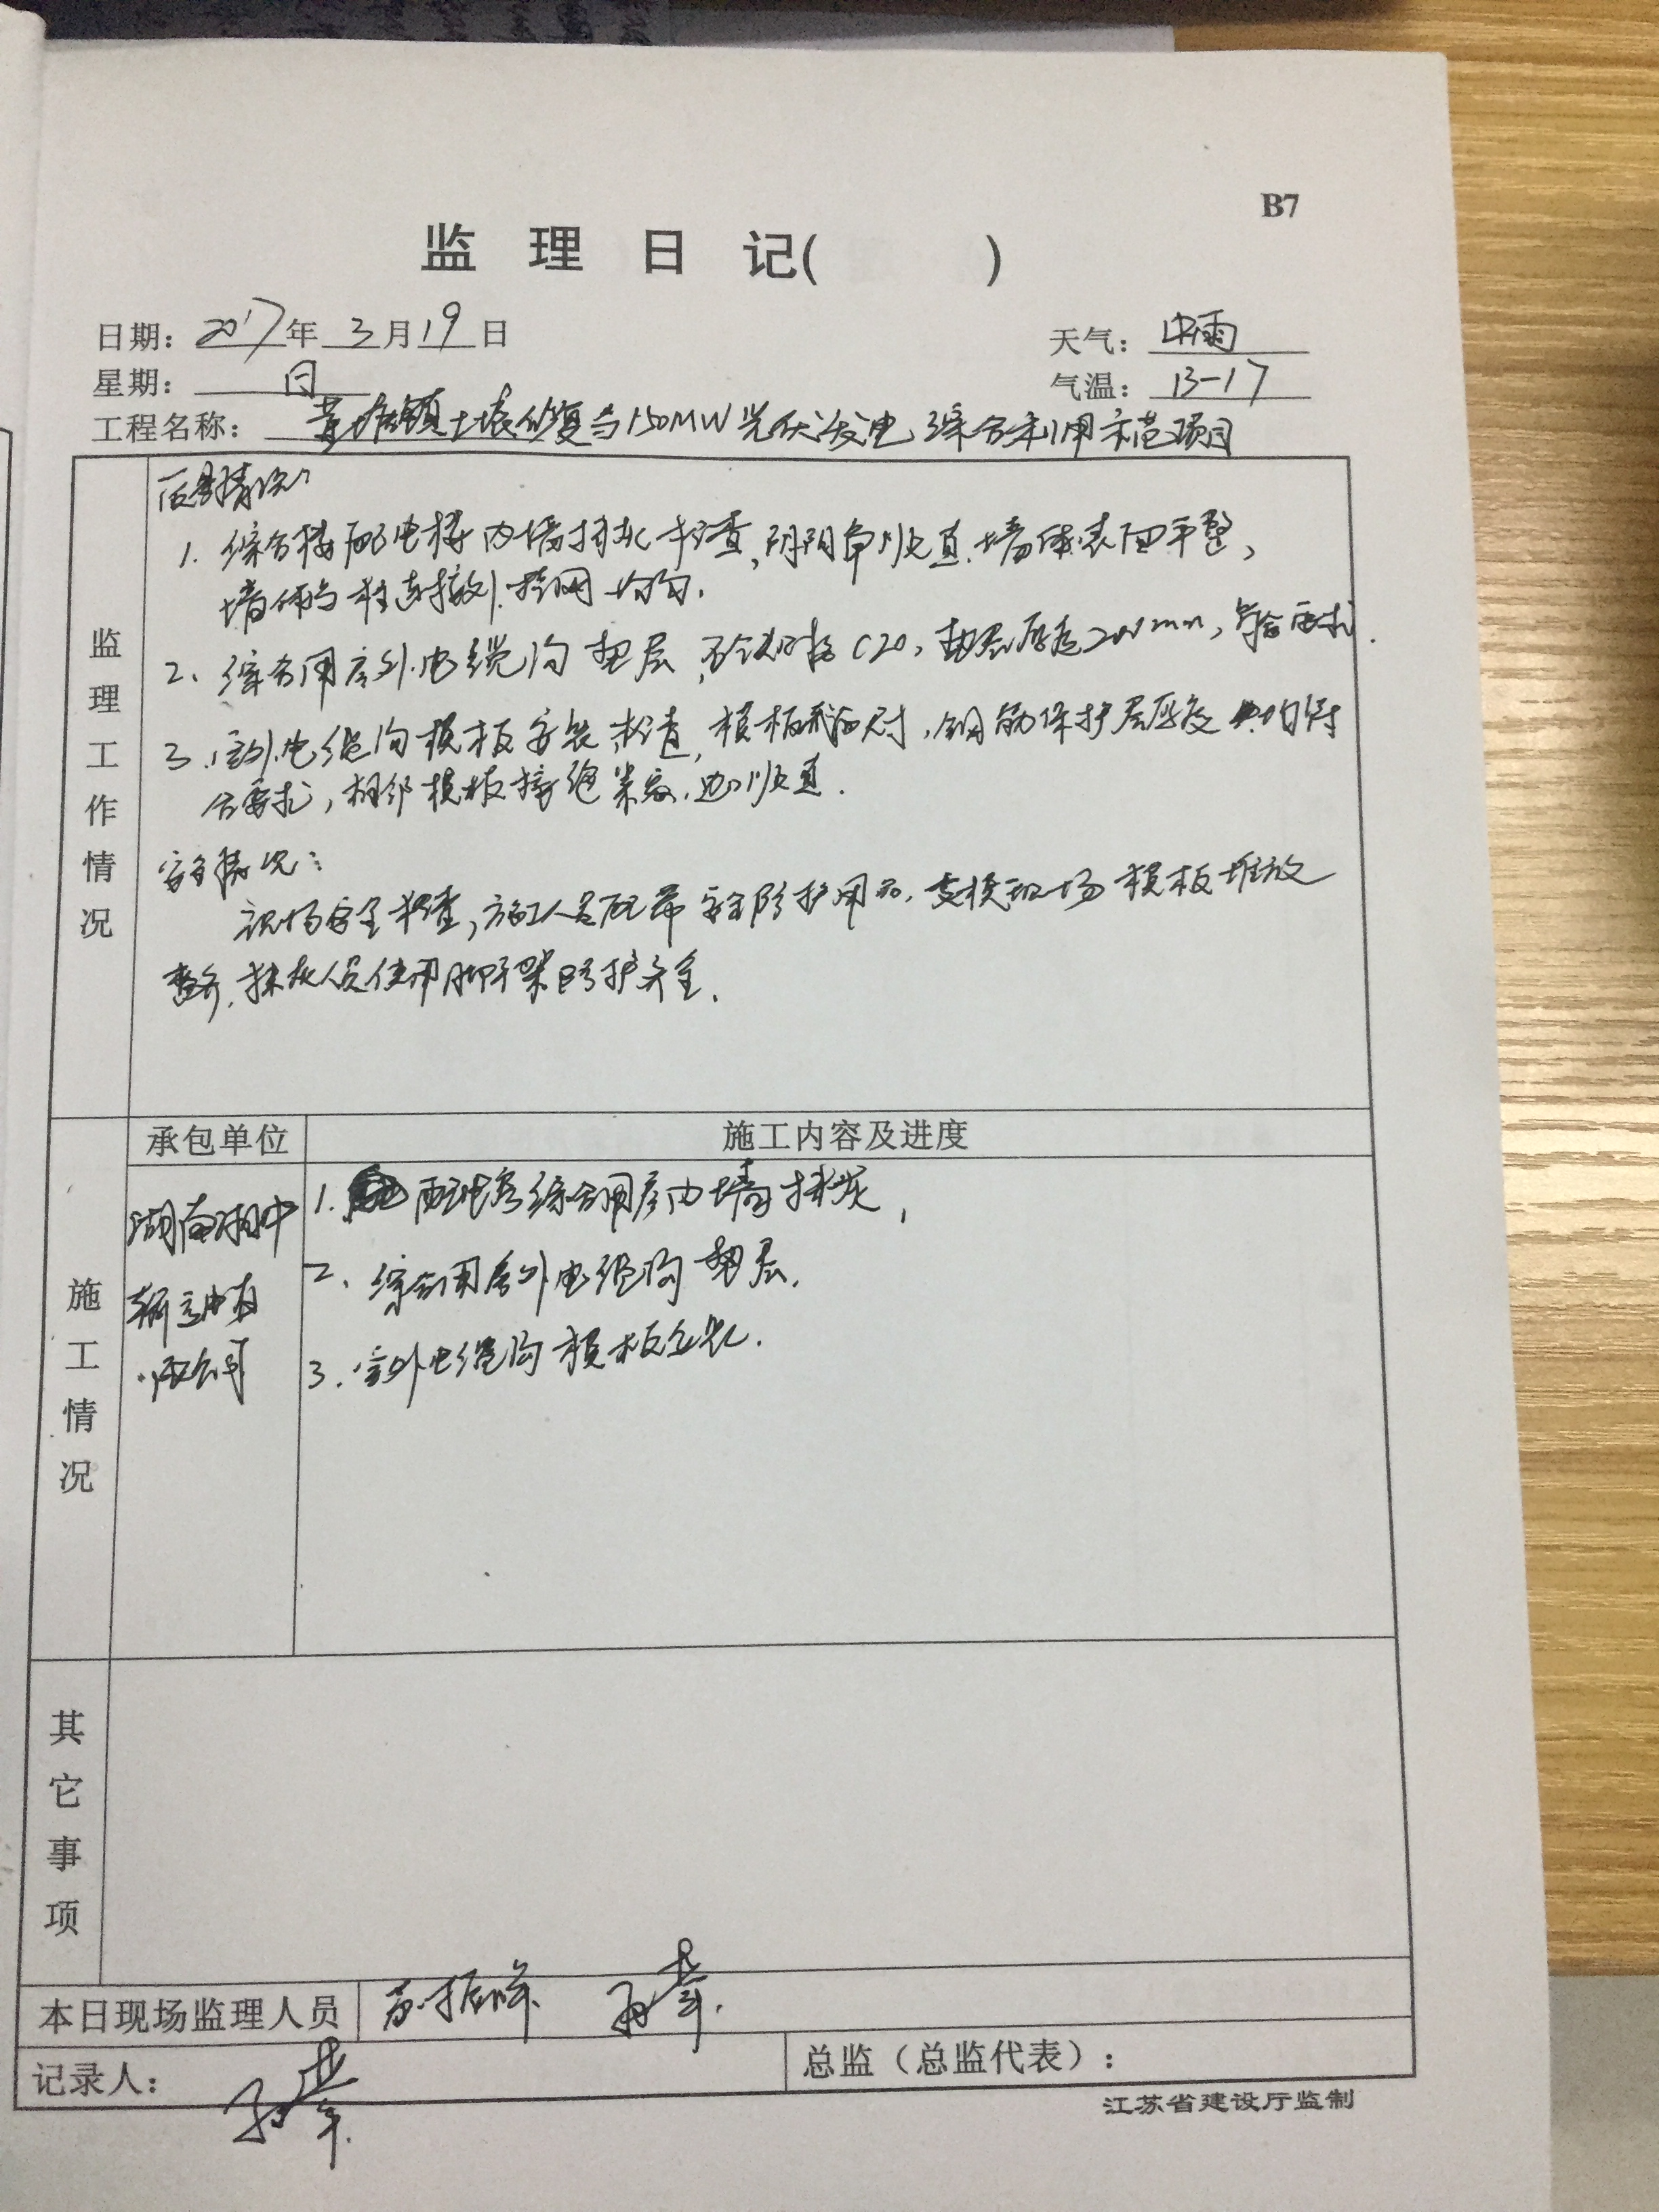 B7
监理日记( )
日期：2017年3月19日
天气：中雨
星期：日
气温：13-17
工程名称：黄塘镇土壤修复与150MW光伏发电综合利用示范项目
监理工作情况
质量情况：
1. 综合楼配电楼内墙抹灰检查，阴阳角顺直，墙体表面平整，
墙体与柱连接处挂网均匀.
2、综合用房外电缆沟垫层，砼C20，垫层厚度200mm，符合要求.
3.室外电缆沟模板安装检查，模板尺寸，钢筋保护层厚度均符
合要求，相邻模板接缝紧密，边顺直.
安全情况：
现场安全检查，施工人员配带安全防护用品，支模现场模板堆放
整齐，抹灰人员使用脚手架防护齐全.
承包单位
施工内容及进度
施工情况
湖南湘中
输变电有
限公司
1. 配电房综合用房内墙抹灰，
2、综合用房外电缆沟垫层.
3.室外电缆沟模板安装.
其它事项
本日现场监理人员
记录人：
总监（总监代表）：
江苏省建设厅监制